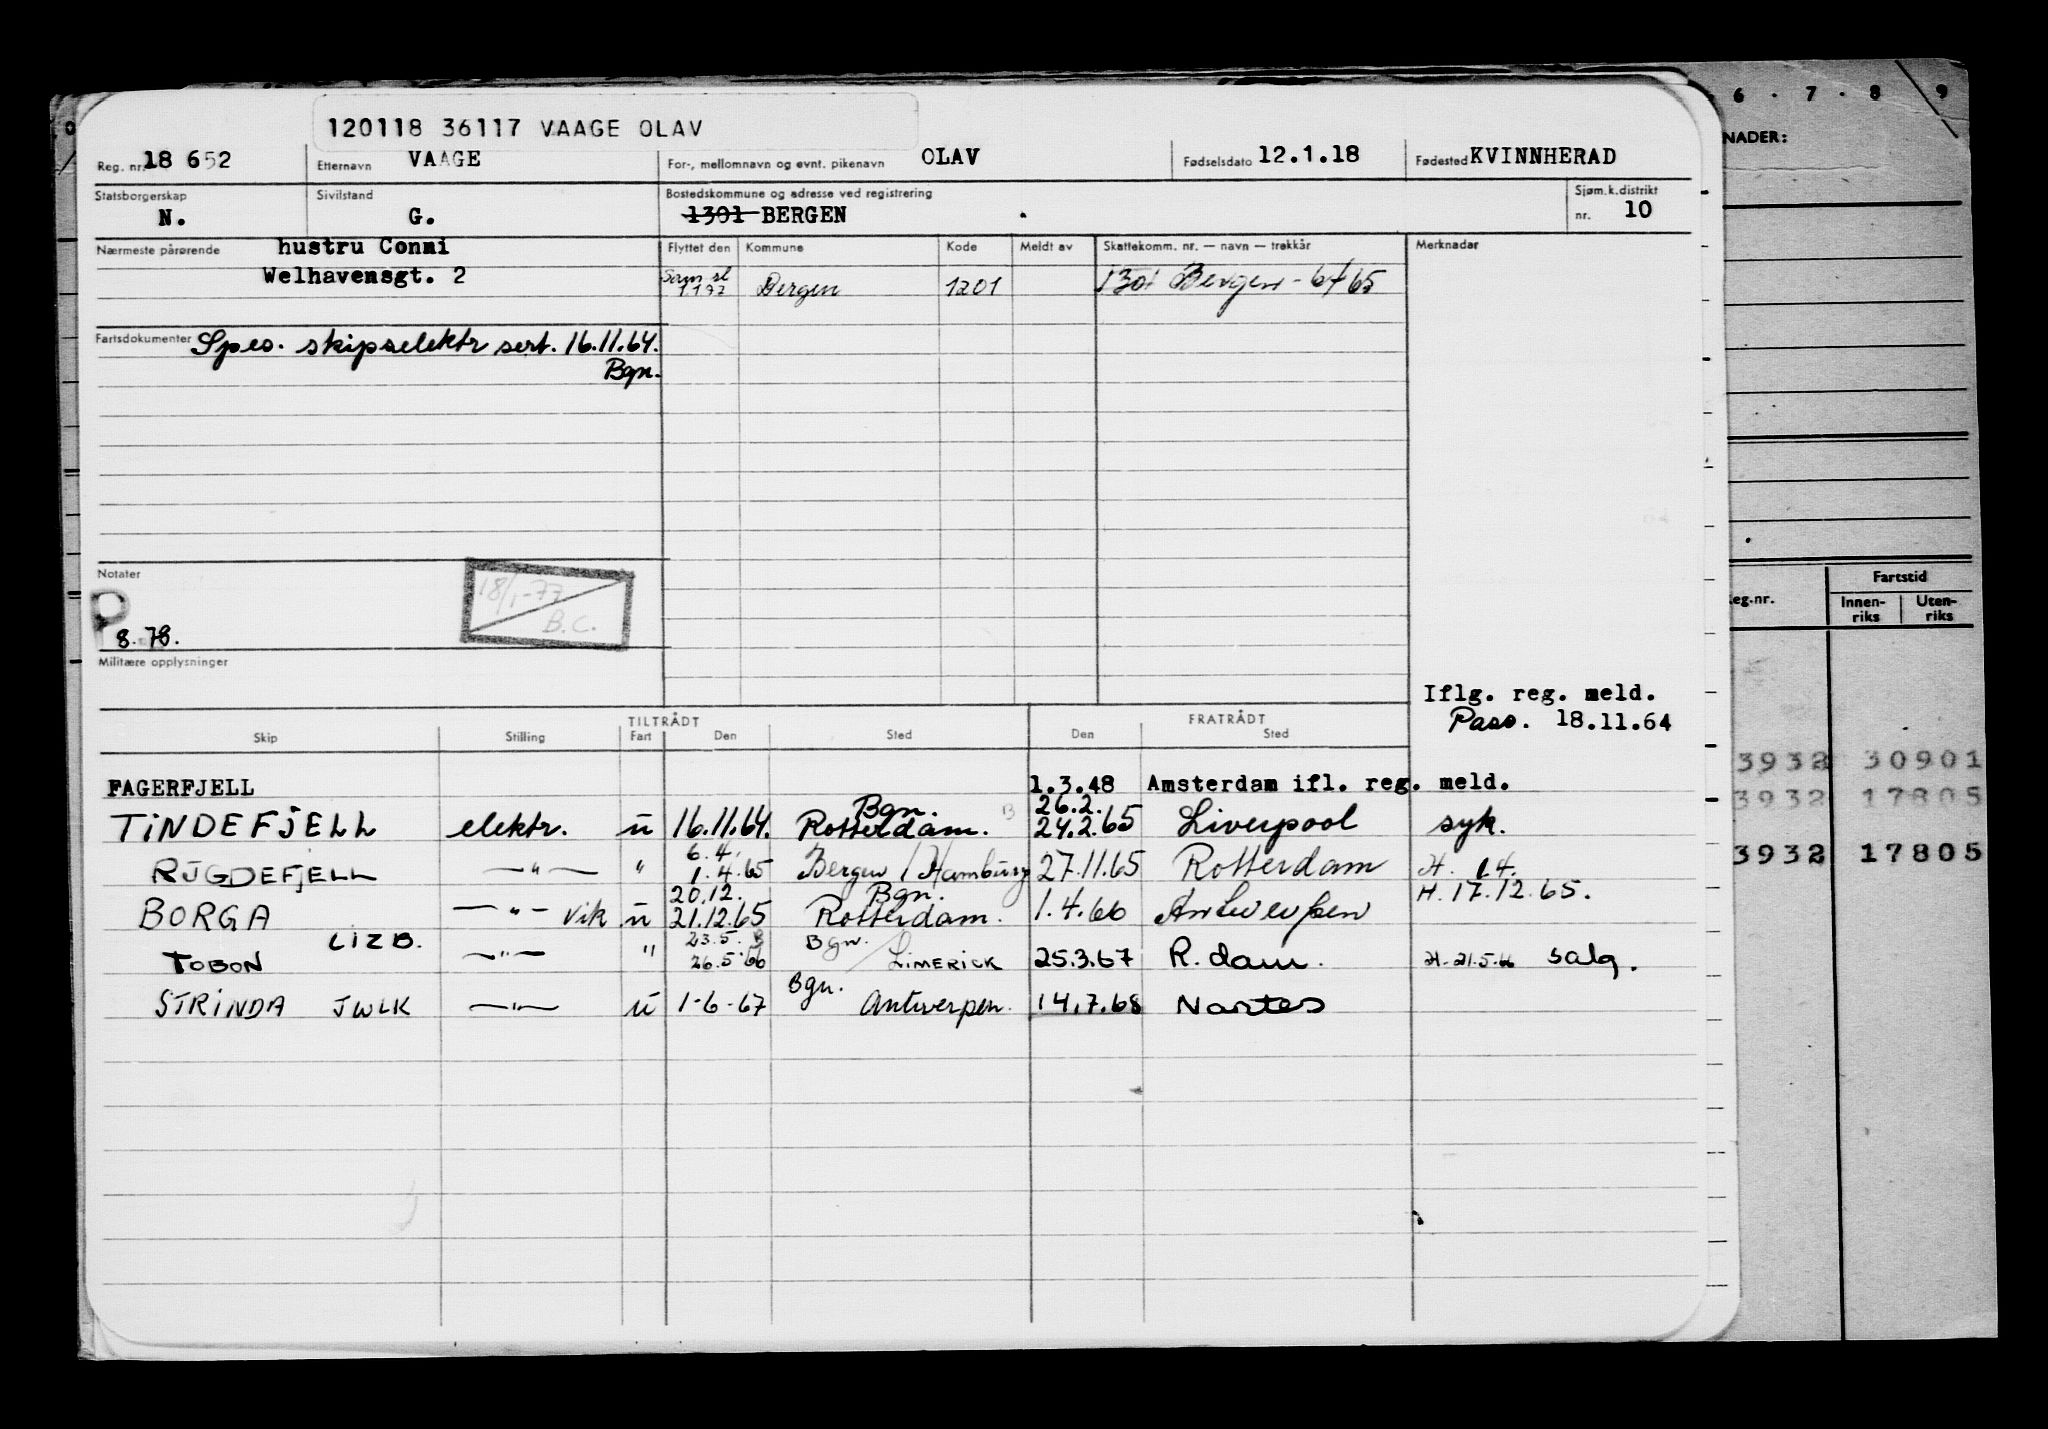 6 · 7 · 8 · 9
NADER:
120118 36117 VAAGE OLAV
Reg. nr. 18 652 Etternavn VAAGE For-, mellomnavn og evnt. pikenavn OLAV Fødselsdato 12.1.18 Fødested KVINNHERAD
Statsborgerskap Sivilstand Bostedskommune og adresse ved registrering Sjøm.k.distrikt
N. G. 1301 BERGEN nr. 10
Nærmeste pårørende hustru Conni Flyttet den Kommune Kode Meldt av Skattekomm. nr. — navn — trekkår Merknader
Welhavensgt. 2
Sam.sl
Bergen 1201 1301 Bergen - 64/65
Fartsdokumenter Spes. skipselektr sert. 16.11.64.
Bgn.
Notater
18/1-77
B.C.
P
8.78.
Militære opplysninger
eg.nr. Fartstid
Innen-riks Uten-riks
Iflg. reg. meld.
Pass. 18.11.64
TILTRÅDT FRATRÅDT
Skip Stilling Fart Den Sted Den Sted
3932 30901
FAGERFJELL 1.3.48 Amsterdam ifl. reg. meld.
3932 17805
Bgn. 26.2.
TINDEFJELL elektr. u 16.11.64. Rotterdam. B 24.2.65 Liverpool syk.
3932 17805
6.4.
RIGDEFJELL —"— " 1.4.65 Bergen / Hamburg 27.11.65 Rotterdam H. 1.4.
20.12. Bgn. H. 17.12.65.
BORGA —"— vik u 21.12.65 Rotterdam. 1.4.66 Antwerpen
LIZB. 23.5. B Bgn.
TOBON —"— " 26.5.66 / LIMERICK 25.3.67 R.dam. H. 21.5.66 salg.
Bgn.
STRINDA JWLK —"— u 1-6-67 Antwerpen. 14.7.68 Nantes